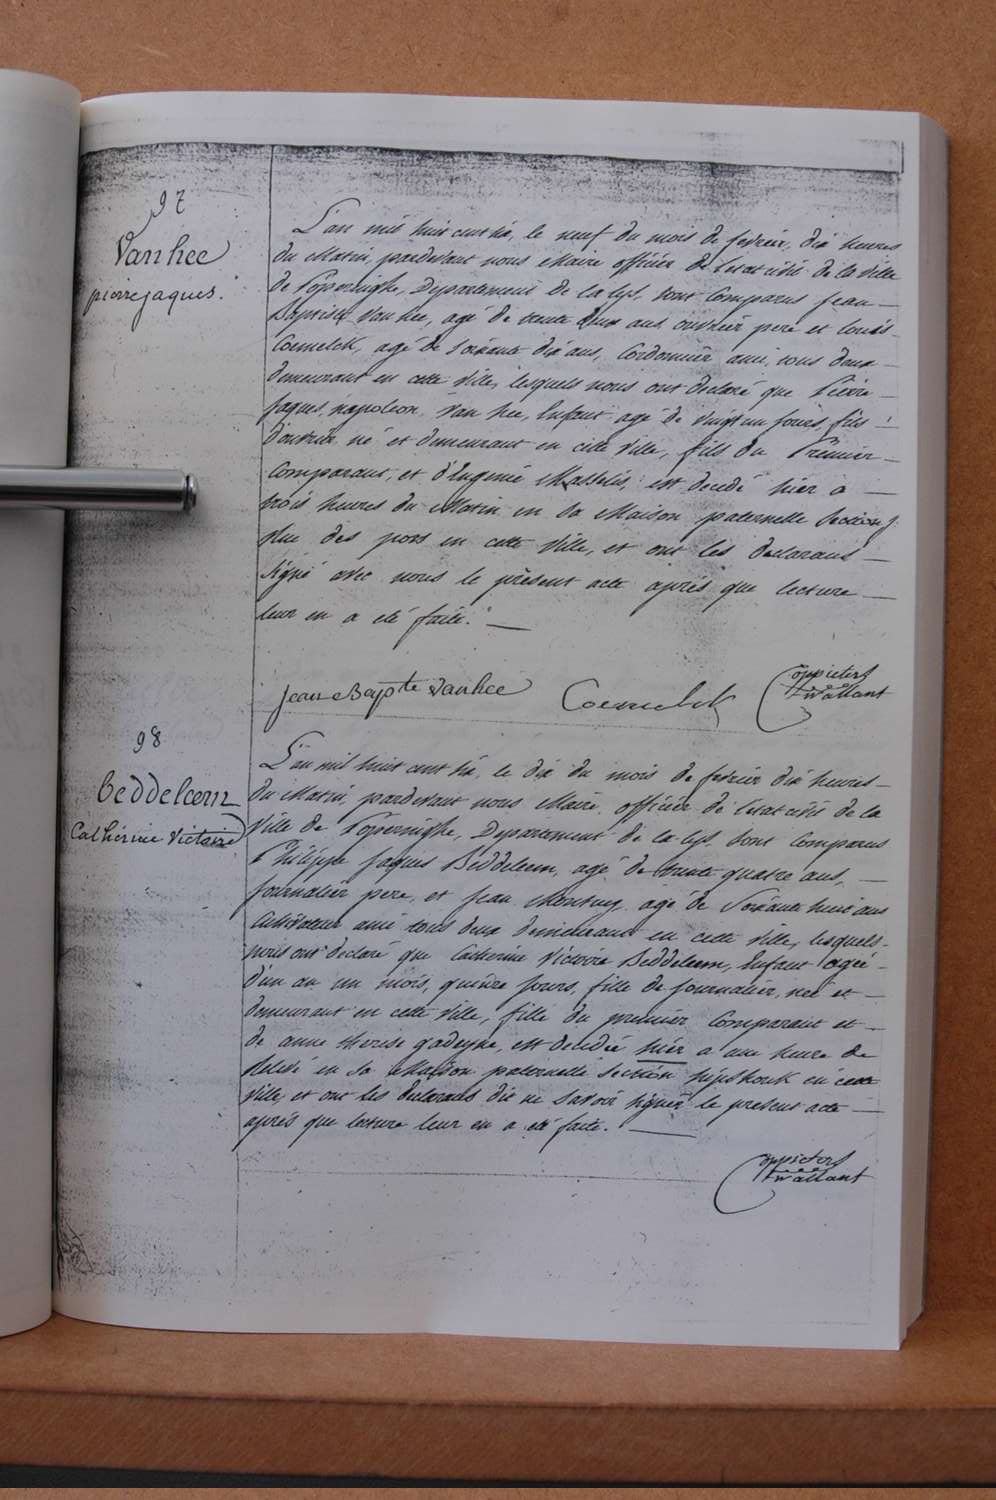 97
Vanhee
pierre jaques.
L'an mil huit cent six, le neuf du mois de fevrier, dix heures
du Matin, pardevant nous Maire officier de l'etat civil de la ville
de Poperinghe, Departement de la Lys, sont Comparus Jean
Baptiste Van hee, agé de trente deux ans ouvrier pere et Louis
Coemelck, agé de soixante dix ans, Cordonnier ami, tous deux
demeurant en cette ville, lesquels nous ont declaré que Pierre
Jaques, napoleon, Van hee, Enfant agé de vingt un jours, fils
d'ouvrier né et demeurant en cette ville, fils du Premier
Comparant, et d'Eugenie Masselis, est decedé hier a
trois heures du Matin en sa Maison paternelle Section
Rue des pots en cette ville, et ont les declarans
Signé avec nous le présent acte après que lecture
leur en a eté faite.
Jean Bapte Vanhee Coemelck
98
beddeleem
Catherine Victoire
L'an mil huit cent six, le dix du mois de fevrier dix heures
du Matin, pardevant nous Maire, officier de l'etat civil de la
Ville de Poperinghe, Departement de la Lys, sont Comparus
Philippe Jaques Beddeleem, agé de trente quatre ans,
Journalier pere, et Jean agé de Soixante huit ans
Cultivateur ami tous deux demeurant en cette ville, lesquels
nous ont declaré que Catherine Victoire Beddeleem, Enfant agée
d'un an un mois, quinze jours, fille de journalier, née et
demeurant en cette ville, fille du premier Comparant et
de anne therese gadeyne, est decedée hier a une heure de
Relevé en sa Maison paternelle Section en cette
Ville, et ont les declarans dit ne savoir signer le present acte
après que lecture leur en a eté faite.